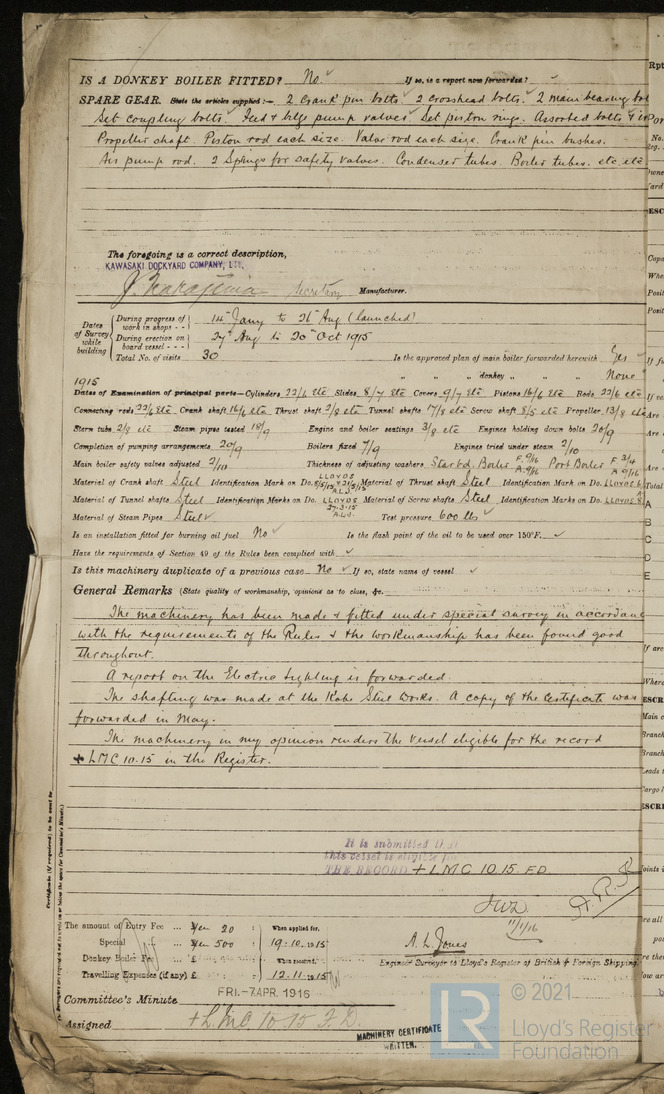 IS A DONKEY BOILER FITTED? No. ✓ If so, is a report now forwarded? ✓
SPARE GEAR. State the articles supplied:— 2 crank pin bolts. 2 crosshead bolts. 2 main bearing bol
Set coupling bolts. Feed & bilge pump valves. Set piston rings. Assorted bolts &
Propeller shaft. Piston rod each size. Valve rod each size. Crank pin bushes.
Air pump rod. 2 Springs for safety valves. Condenser tubes. Boiler tubes. etc etc
The foregoing is a correct description,
KAWASAKI DOCKYARD COMPANY, LTD,
Secretary Manufacturer.
Dates of Survey while building
During progress of work in shops - - 14th Jany to 26th Aug (launched)
During erection on board vessel - - - 27th Aug to 20th Oct 1915
Total No. of visits 30 Is the approved plan of main boiler forwarded herewith Yes
" " " donkey " " " None
1915
Dates of Examination of principal parts—Cylinders 22/6 etc Slides 8/7 etc Covers 9/7 etc Pistons 16/6 etc Rods 22/6 etc
Connecting rods 22/6 etc Crank shaft 16/6 etc Thrust shaft 2/8 etc Tunnel shafts 17/8 etc Screw shaft 8/5 etc Propeller 13/8 etc
Stern tube 2/8 etc Steam pipes tested 18/9 Engine and boiler seatings 3/8 etc Engines holding down bolts 20/9
Completion of pumping arrangements 20/9 Boilers fixed 7/9 Engines tried under steam 2/10
Main boiler safety valves adjusted 2/10 Thickness of adjusting washers Starbd. Boiler F. 9/16 A. 9/16 Port Boiler F 3/4 A 9/16
Material of Crank shaft Steel Identification Mark on Do. LLOYDS A.L.J. Material of Thrust shaft Steel Identification Mark on Do. LLOYDS
Material of Tunnel shafts Steel Identification Marks on Do. LLOYDS 27.3.15 A.L.J. Material of Screw shafts Steel Identification Marks on Do. LLOYDS
Material of Steam Pipes Steel ✓ Test pressure 600 lbs ✓
Is an installation fitted for burning oil fuel No ✓ Is the flash point of the oil to be used over 150°F. ✓
Have the requirements of Section 49 of the Rules been complied with ✓
Is this machinery duplicate of a previous case No ✓ If so, state name of vessel ✓
General Remarks (State quality of workmanship, opinions as to class, &c.
The machinery has been made & fitted under special survey in accordanc
with the requirements of the Rules & the workmanship has been found good
throughout.
A report on the Electric Lighting is forwarded.
The shafting was made at the Kobe Steel Works. A copy of the Certificate was
forwarded in May.
The machinery in my opinion renders the vessel eligible for the record
+ LMC 10.15 in the Register.
It is submitted that
this vessel is eligible for
THE RECORD + LMC 10.15. F.D.
11/1/16
The amount of Entry Fee ... Yen 20 : When applied for,
Special ... Yen 500 : 19.10.1915
Donkey Boiler Fee ... £ : When received,
Travelling Expenses (if any) £ : 12.11.1915
A. L. Jones
Engineer Surveyor to Lloyd's Register of British & Foreign Shipping.
Committee's Minute FRI. - 7 APR. 1916
Assigned + L.M.C 10.15 F.D.
MACHINERY CERTIFICATE
WRITTEN.
© 2021
LR
Lloyd's Register
Foundation